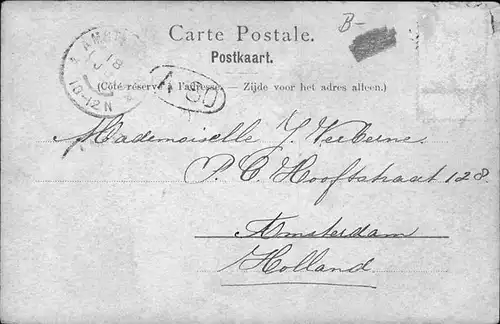 B-
Carte Postale.
Postkaart.
(Côté réservé à l'adresse. — Zijde voor het adres alleen.)
18
10-12 N
Mademoiselle J. Verberne.
P. C. Hooftstraat 128.
Amsterdam
Holland.